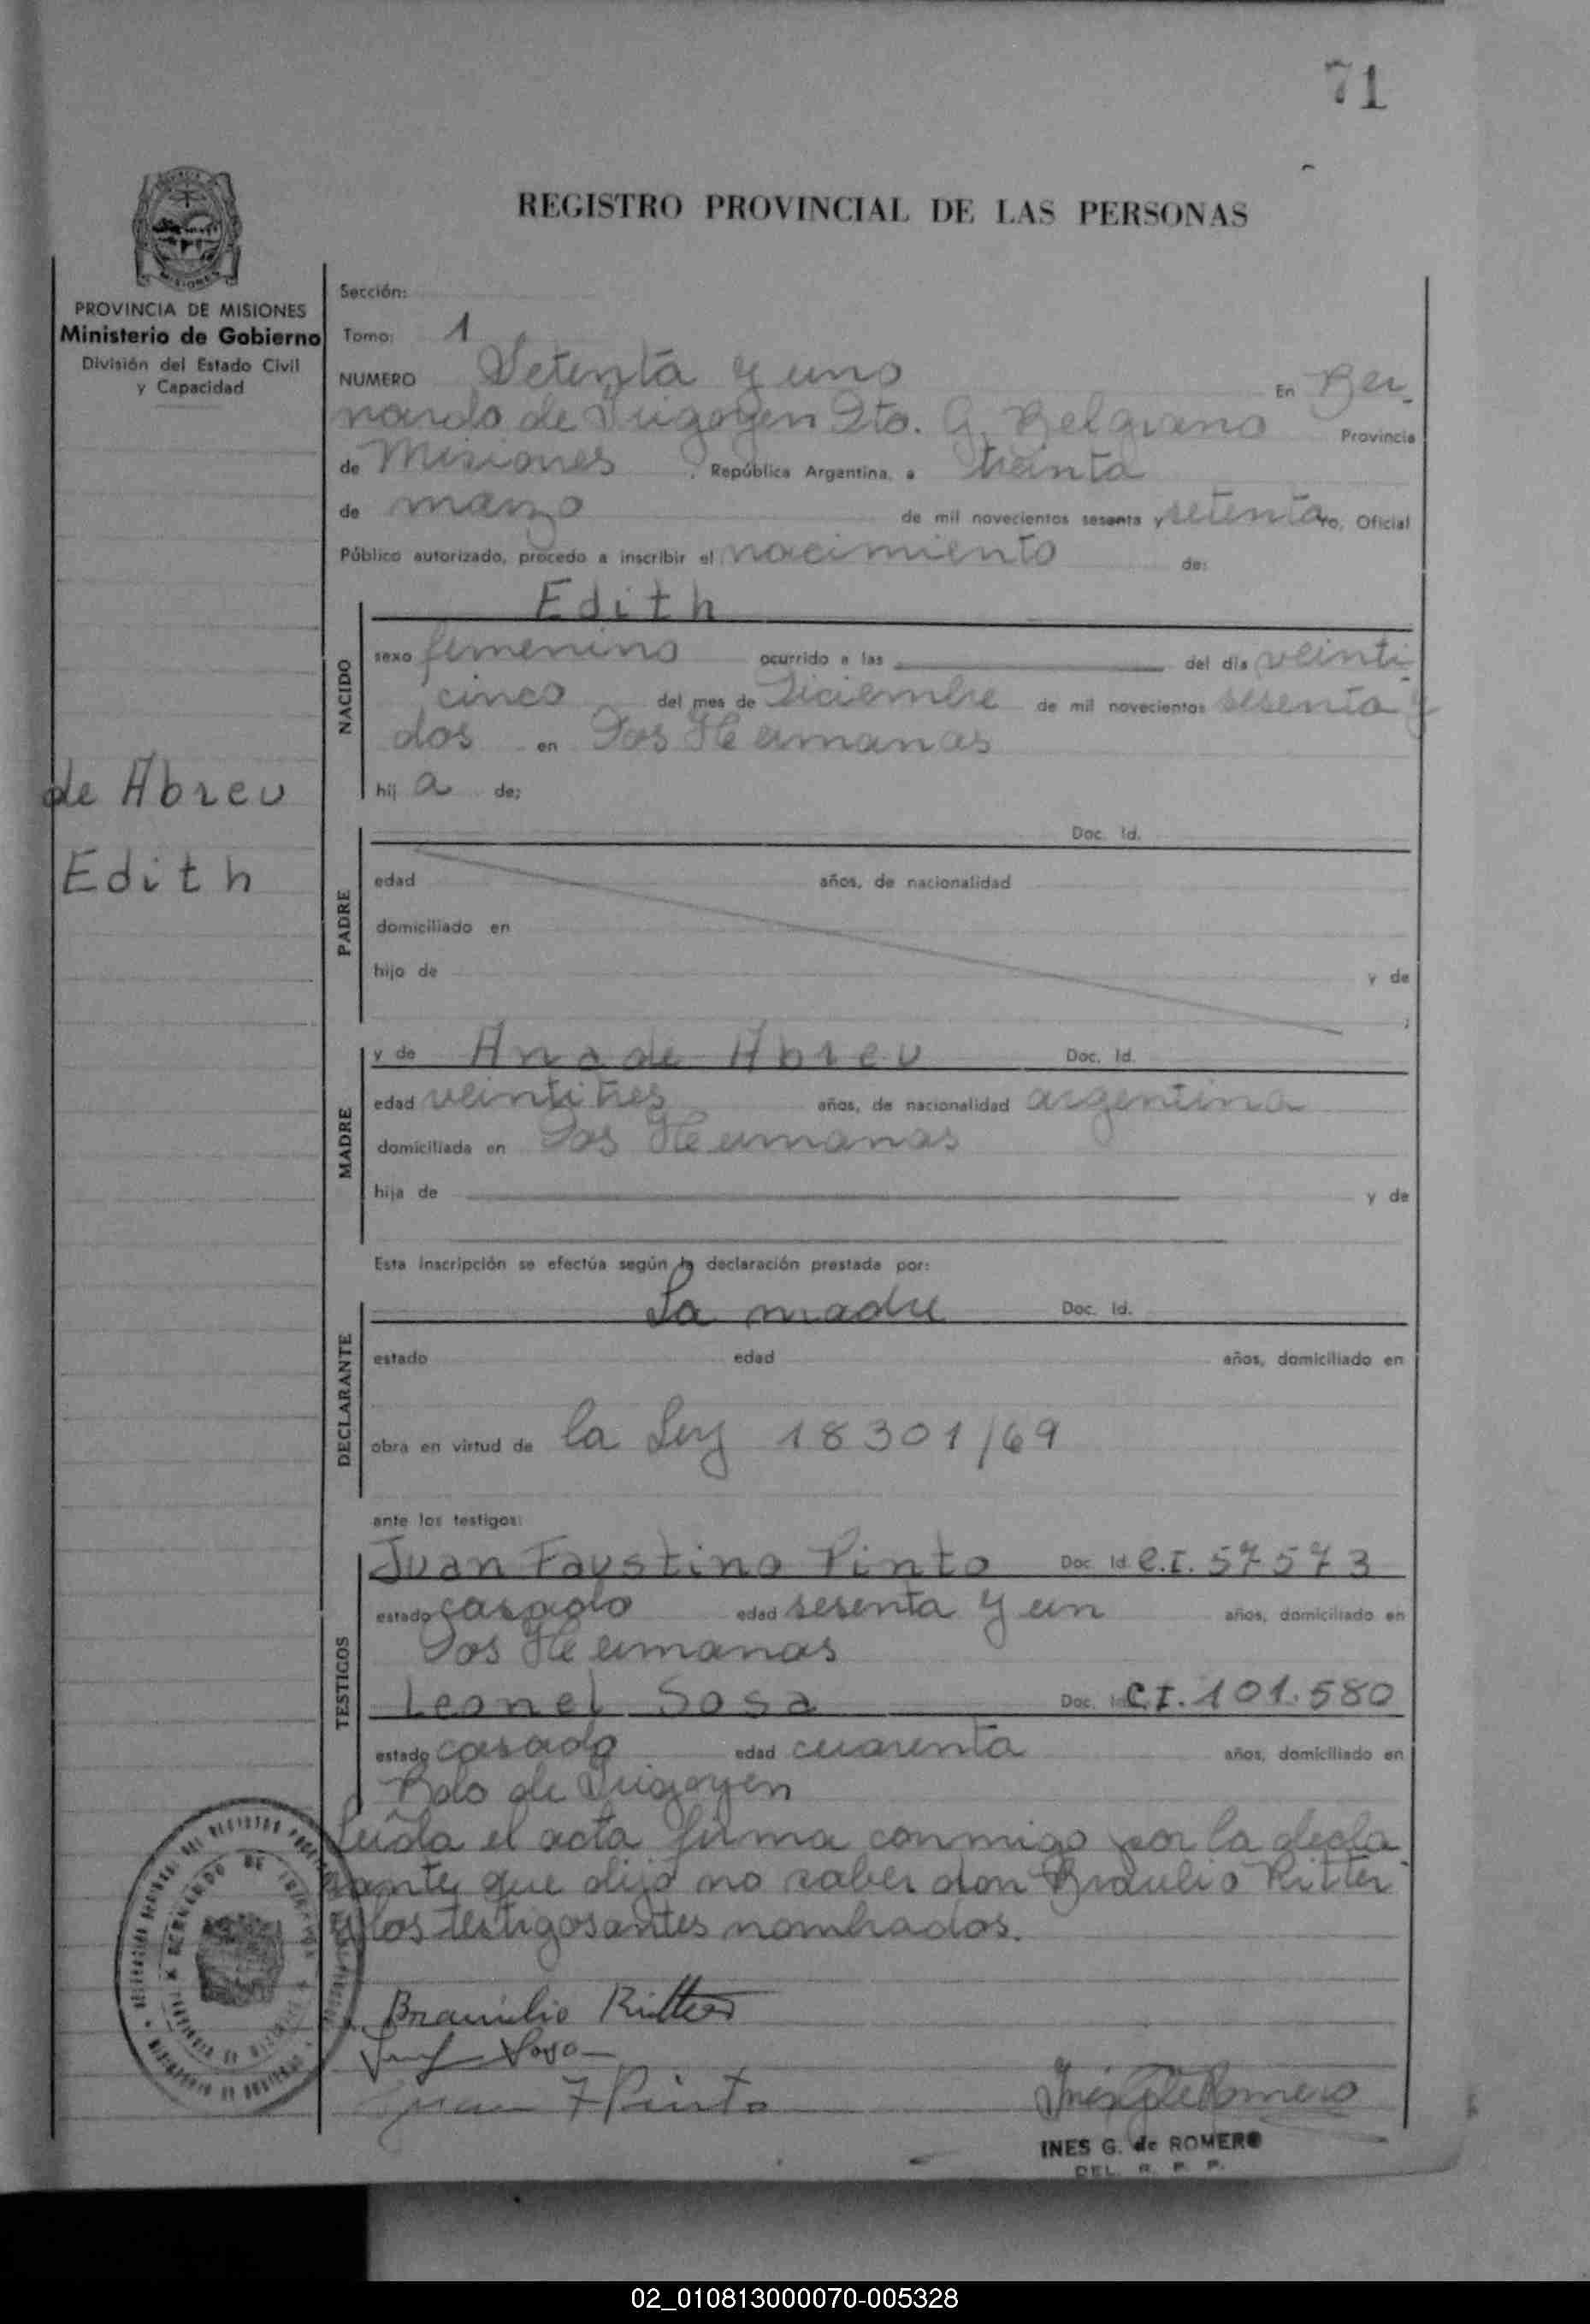 71
REGISTRO PROVINCIAL DE LAS PERSONAS
MISIONES
PROVINCIA DE MISIONES
Ministerio de Gobierno
División del Estado Civil
y Capacidad
de Abreu
Edith
Sección:
Tomo: 1
NUMERO Setenta y uno En Ber-
nardo de Irigoyen Dto. G. Belgrano Provincia
de Misiones, República Argentina, a treinta
de marzo de mil novecientos sesenta y setenta yo, Oficial
Público autorizado, procedo a inscribir el nacimiento de:
Edith
NACIDO
sexo femenino ocurrido a las del día veinti-
cinco del mes de Diciembre de mil novecientos sesenta y
dos en Dos Hermanas
hij a de:
PADRE
Doc. Id.
edad años, de nacionalidad
domiciliado en
hijo de y de
;
MADRE
y de Ana de Abreu Doc. Id.
edad veintitres años, de nacionalidad argentina
domiciliada en Dos Hermanas
hija de y de
Esta inscripción se efectúa según la declaración prestada por:
DECLARANTE
La madre Doc. Id.
estado edad años, domiciliado en
obra en virtud de la Ley 18301/69
ante los testigos:
TESTIGOS
Juan Faustino Pinto Doc. Id. C.I. 57573
estado casado edad sesenta y un años, domiciliado en
Dos Hermanas
Leonel Sosa Doc. Id. C.I. 101.580
estado casado edad cuarenta años, domiciliado en
Bdo de Irigoyen
Leída el acta firma conmigo por la decla-
rante que dijo no saber don Braulio Ritter
y los testigos antes nombrados.
BERNARDO DE IRIGOYEN
Braulio Ritter
Sosa
Juan F Pinto
Inés G de Romero
INES G. de ROMERO
DEL. R. P. P.
02_010813000070-005328